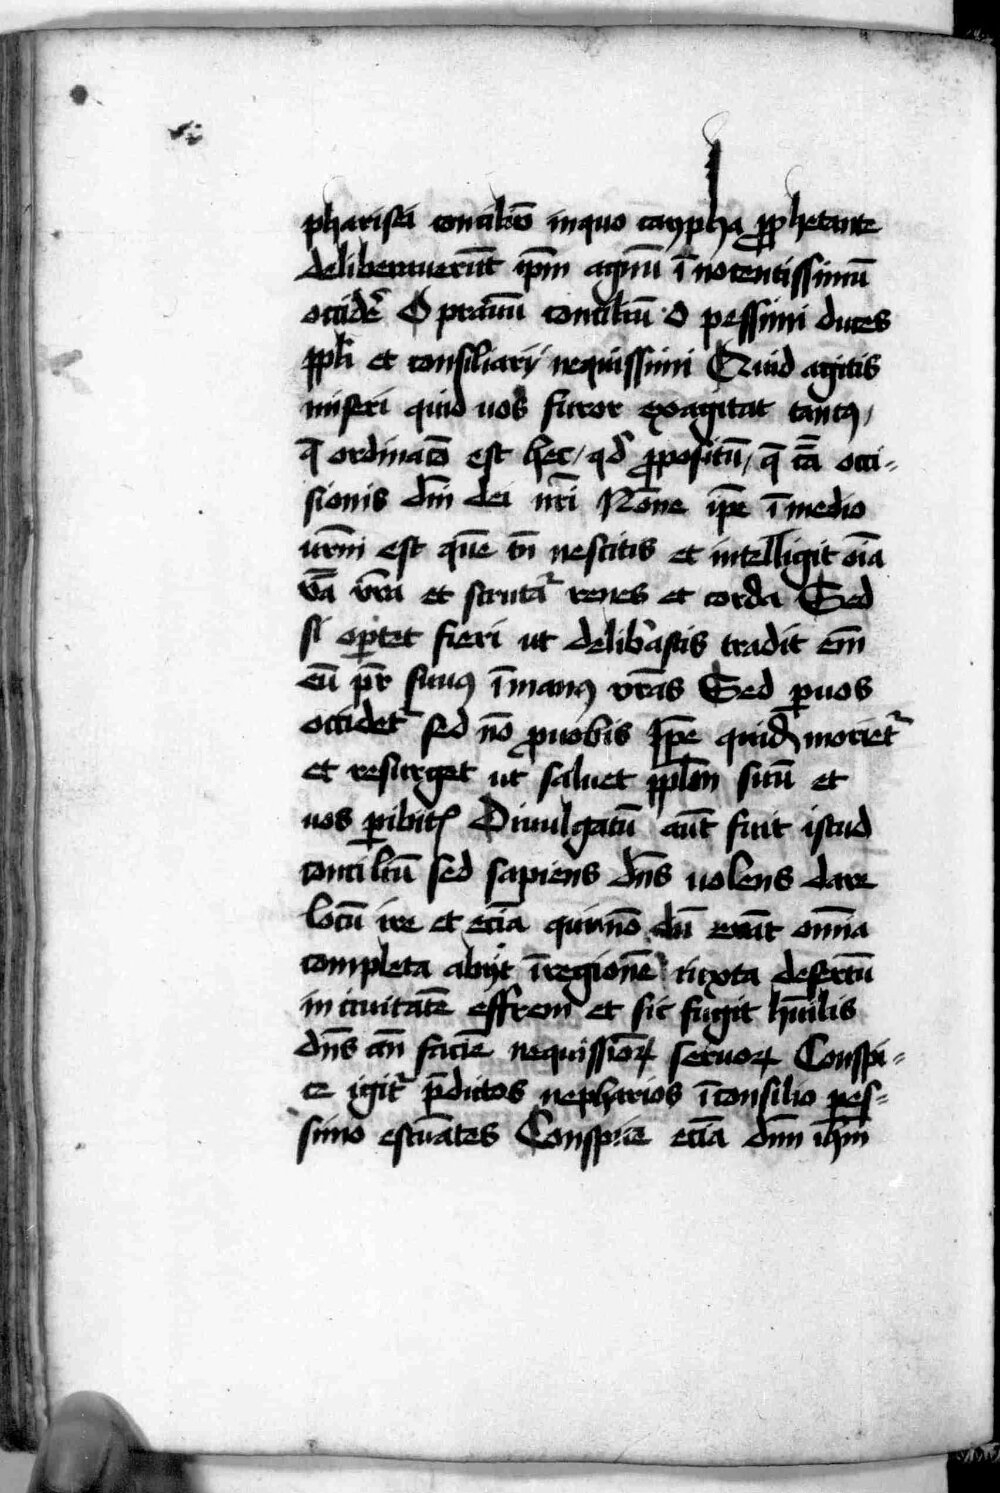 pharisei conciliū inquo caypha ꝓphetante
deliberauerūt ip̄m agnū īnocentissimū
occidē O prauū conciliū O pessimi duces
ppl̄i et consiliarij nequissimi Quid agitis
miseri quid uos furor exagitat tantꝰ
q̄ ordinacō est hec / qd̓ ꝓpositū / q̄ cā occi-
sionis dn̄i dei nr̄i Nōne ip̄e ī medio
ur̄m est quē vn̄ nescitis et intelligit oīa
vr̄a et scrutat᷑ renes et corda Sed
si oꝑtet fieri ut delib̓astis tradit em̄
eū pr̄ suus ī manꝰ vr̄as Sed ꝑ uos
occidet᷑ sed nō ꝓ uobis Ip̄e quidē moriet᷑
et resurget ut saluet ppl̄m suū et
uos ꝑibitis Diuulgatū aūt fuit istud
conciliū sed sapiens dn̄s uolens dare
locū ire et eciā qui nōdū erāt om̄ia
completa abijt ī regionē iuxta desertū
in ciuitatē effrem et sic fugit hūilis
dn̄s an̄ faciē nequissioꝝ seruoꝝ Conspi-
ce igit᷑ p̄dictos nepharios ī consilio pes-
simo estuātes Conspice eciā dn̄m ih̄m